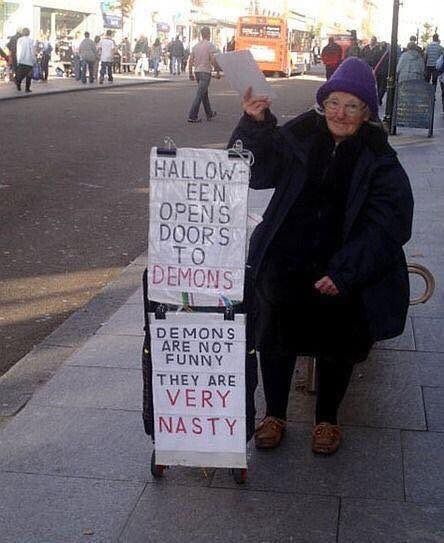 HALLOW-
EEN
OPENS
DOORS
TO
DEMONS
DEMONS
ARE NOT
FUNNY
THEY ARE
VERY
NASTY